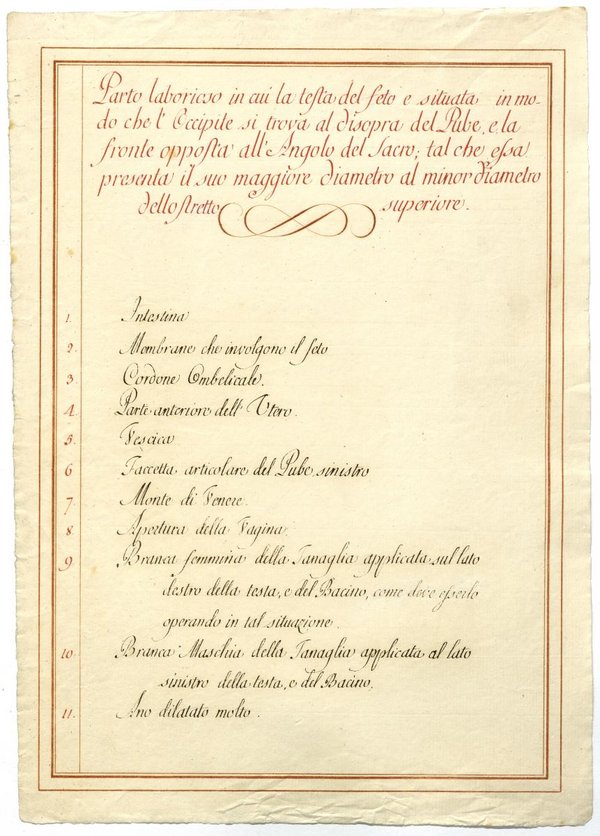 Parto laborioso in cui la testa del feto e situata in mo-
do che l' Occipite si trova al disopra del Pube, e la
fronte opposta all' Angolo del Sacro; tal che essa
presenta il suo maggiore diametro al minor diametro
dello stretto superiore.
1. Intestina
2. Membrane che involgono il feto
3 Cordone Ombelicale.
4. Parte anteriore dell' Utero.
5. Vescica
6 Faccetta articolare del Pube sinistro
7. Monte di Venere.
8. Apertura della Vagina.
9 Branca femmina della Tanaglia applicata sul lato
destro della testa, e del Bacino, come deve esserlo
operando in tal situazione.
10. Branca Maschia della Tanaglia applicata al lato
sinistro della testa, e del Bacino.
11. Ano dilatato molto.